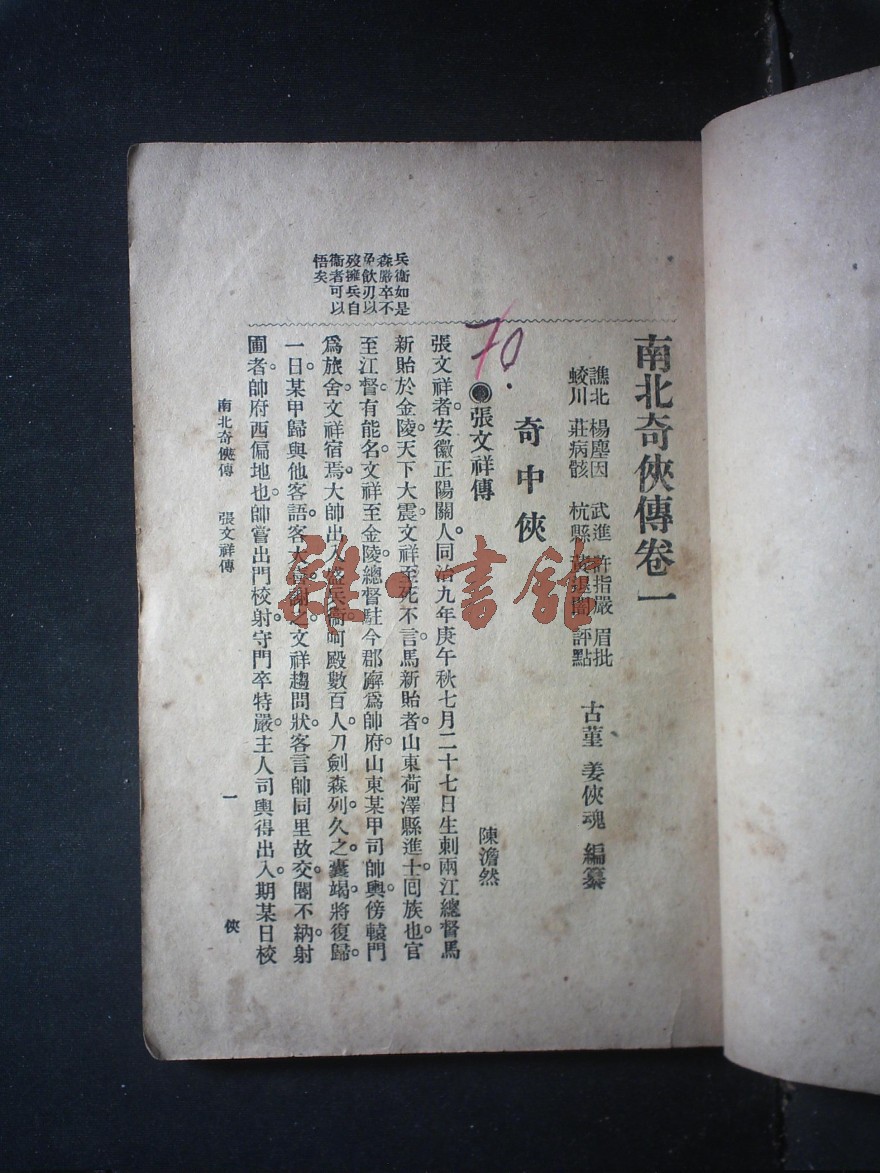 南北奇俠傳卷一
譙北 楊塵因 武進 許指嚴 眉批
蛟川 莊病骸 杭縣 評點
古堇 姜俠魂 編纂
奇中俠
70.
張文祥傳
陳澹然
張文祥者。安徽正陽關人。同治九年庚午秋七月二十七日生刺兩江總督馬
新貽於金陵。天下大震。文祥至死不言。馬新貽者。山東荷澤縣進士回族也。官
至江督。有能名。文祥至金陵。總督駐今郡廨爲帥府。山東某甲司帥輿。傍轅門
爲旅舍。文祥宿焉。大帥出入。盛兵衞。呵殿數百人。刀劍森列。久之。囊竭。將復歸。
一日。某甲歸與他客語。客大謝之。文祥趨問狀。客言帥同里故交。閽不納。射
圃者。帥府西偏地也。帥嘗出門校射。守門卒特嚴。主人司輿得出入。期某日校
兵衞如是
森嚴卒不
免飲刃以
歿擁兵自
衞者可以
悟矣
南北奇俠傳 張文祥傳
一
俠
雜·書館